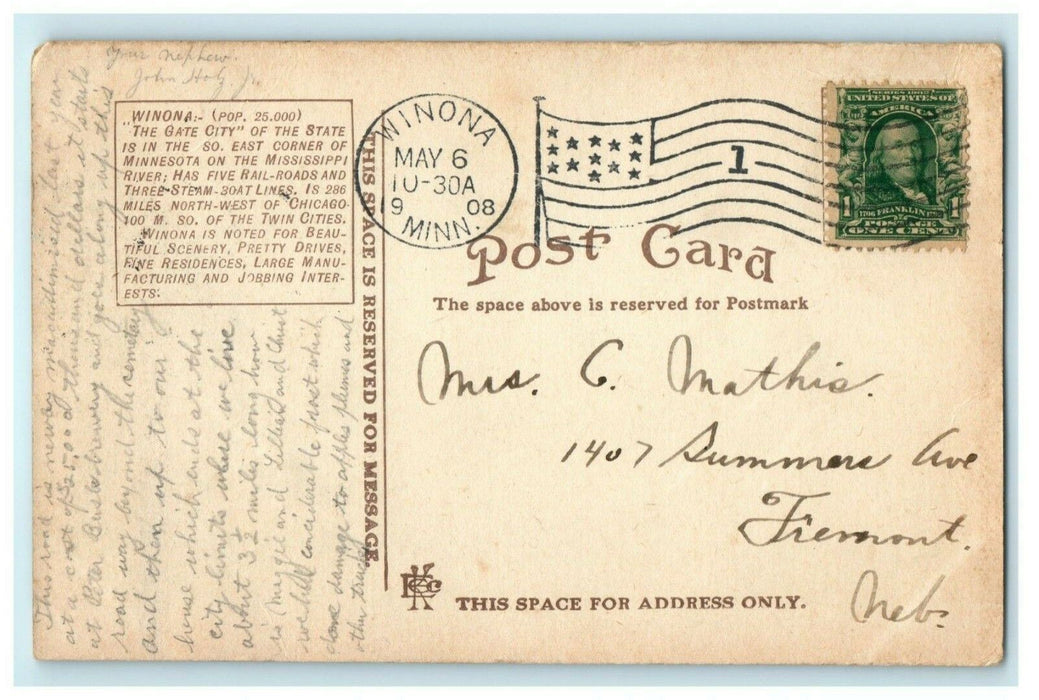 Your nephew.
John Holz Jr.
"WINONA:- (POP. 25.000)
"THE GATE CITY" OF THE STATE
IS IN THE SO. EAST CORNER OF
MINNESOTA ON THE MISSISSIPPI
RIVER; HAS FIVE RAIL-ROADS AND
THREE-STEAM-BOAT LINES. IS 286
MILES NORTH-WEST OF CHICAGO-
100 M. SO. OF THE TWIN CITIES.
WINONA IS NOTED FOR BEAU-
TIFUL SCENERY, PRETTY DRIVES,
FINE RESIDENCES, LARGE MANU-
FACTURING AND JOBBING INTER-
ESTS.
This road is newly macadimised last year
at a cost of $25,000 thousand dollars it starts
at brewery and goes along up this
road way beyond the cemetary
and then up to our
house which ends at the
city limits where we live
about 3½ miles long how
is Maggie and and
we had considerable frost which
done damage to apples plums and
other
THIS SPACE IS RESERVED FOR MESSAGE.
WINONA
MAY 6
10-30A
19 08
MINN.
1
SERIES 1902
UNITED STATES OF
AMERICA
1706 FRANKLIN 1790
1 POSTAGE 1
ONE CENT
Post Card
The space above is reserved for Postmark
Mrs. C. Mathis.
1407 Summers Ave
Fremont.
Neb.
THIS SPACE FOR ADDRESS ONLY.